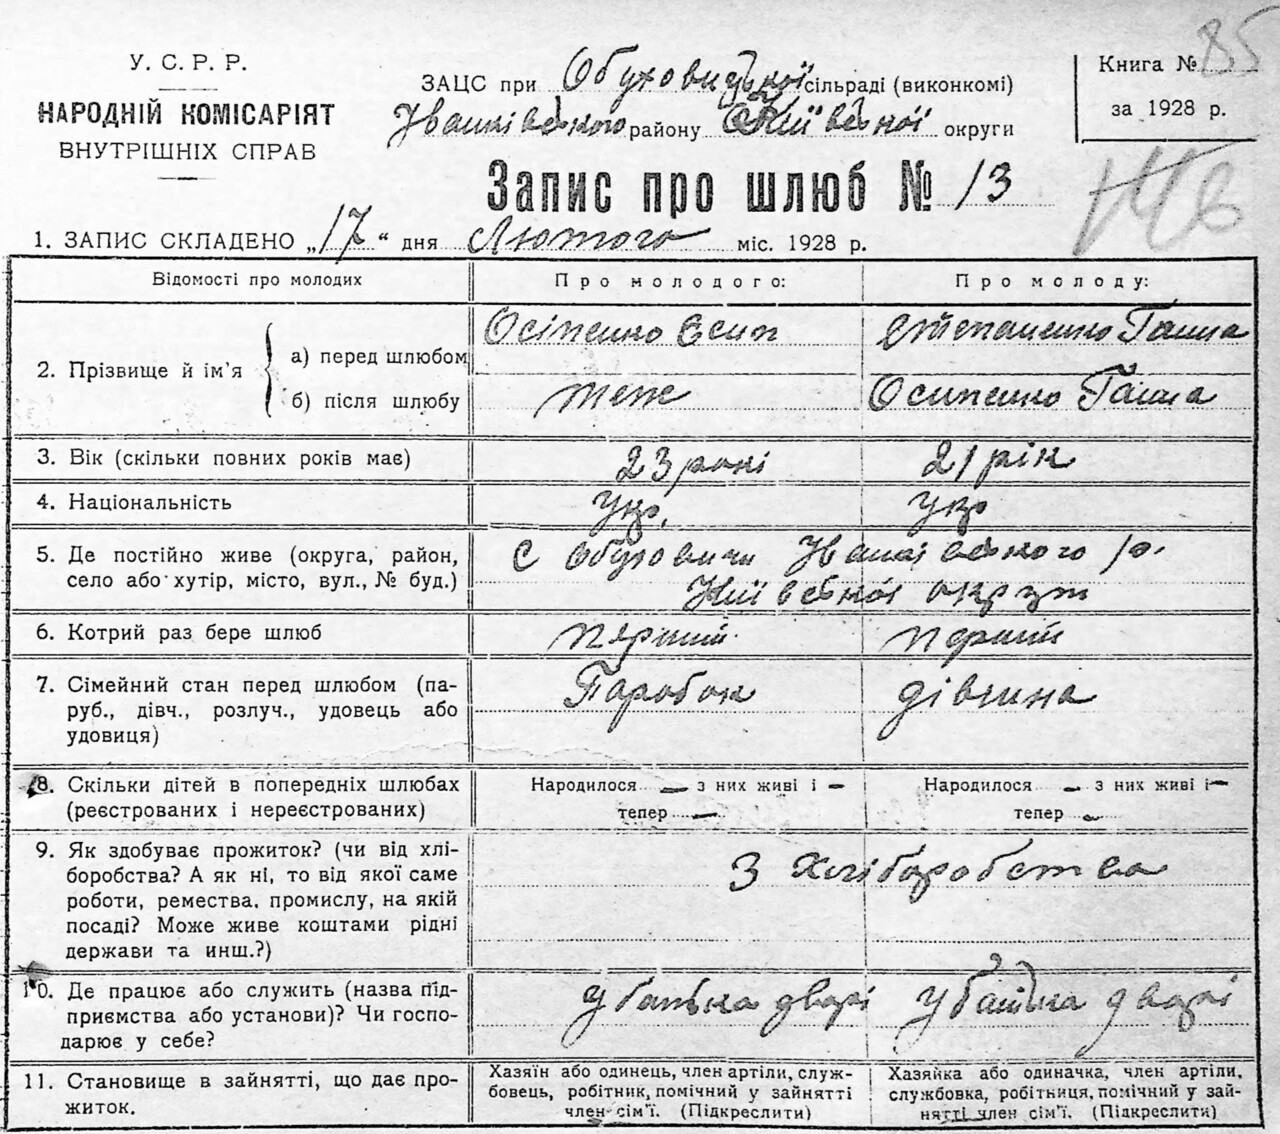 У. С. Р. Р.
НАРОДНІЙ КОМІСАРІЯТ
ВНУТРІШНІХ СПРАВ
ЗАЦС при Обуховицької сільраді (виконкомі)
Іванківського району Київської округи
Книга № 85
за 1928 р.
Запис про шлюб № 13
1. ЗАПИС СКЛАДЕНО „17“ дня Лютого міс. 1928 р.
Відомості про молодих Про молодого: Про молоду:
2. Прізвище й ім'я
а) перед шлюбом Осіпенко Єсип Степаненко Ганна
б) після шлюбу теж Осипенко Ганна
3. Вік (скільки повних років має) 23 рокі 21 рік
4. Національність Укр. Укр
5. Де постійно живе (округа, район, с Обуховичи Іванківського р.
село або хутір, місто, вул., № буд.) Київської округи
6. Котрий раз бере шлюб перший перший
7. Сімейний стан перед шлюбом (па- Паробок дівчина
руб., дівч., розлуч., удовець або
удовиця)
8. Скільки дітей в попередніх шлюбах Народилося — з них живі і — Народилося — з них живі і —
(реєстрованих і нереєстрованих) тепер — тепер —
9. Як здобуває прожиток? (чи від хлі- З хліборобства
боробства? А як ні, то від якої саме
роботи, ремества, промислу, на якій
посаді? Може живе коштами рідні
держави та инш.?)
10. Де працює або служить (назва під- У батька дворі У батька дворі
приємства або установи)? Чи госпо-
дарює у себе?
11. Становище в зайнятті, що дає про- Хазяїн або одинець, член артіли, служ- Хазяйка або одиначка, член артілі,
житок. бовець, робітник, помічний у зайнятті службовка, робітниця, помічний у зай-
член сім'ї. (Підкреслити) нятті член сім'ї. (Підкреслити)